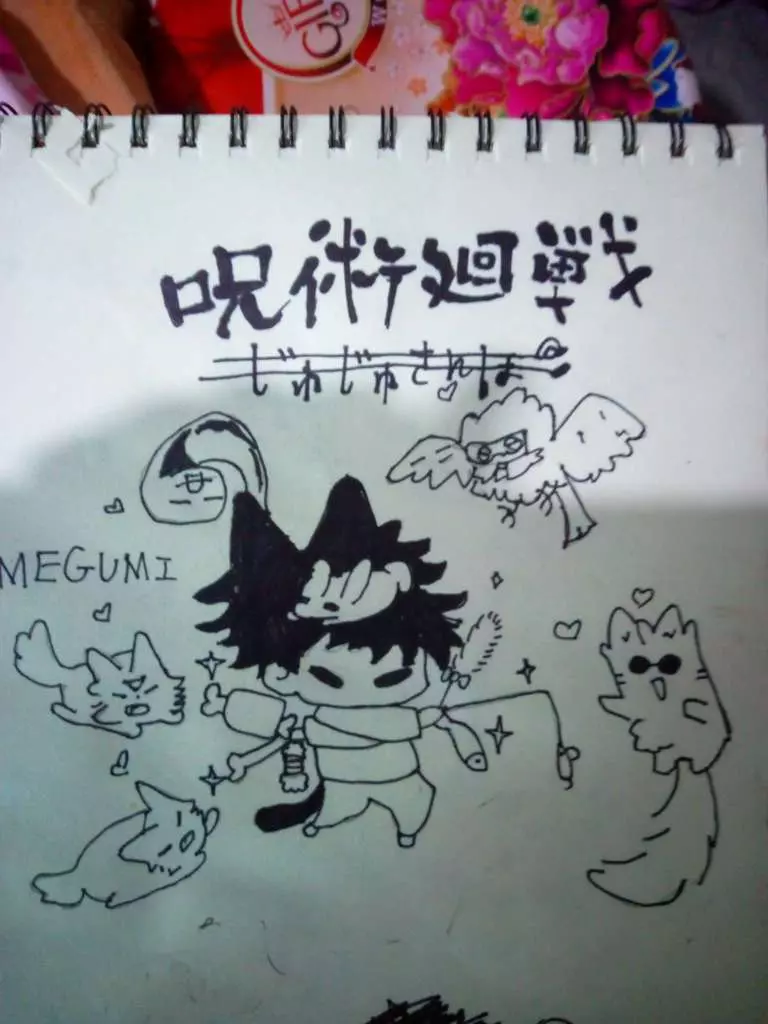 呪術廻戦
じゅじゅさんぽ
MEGUMI